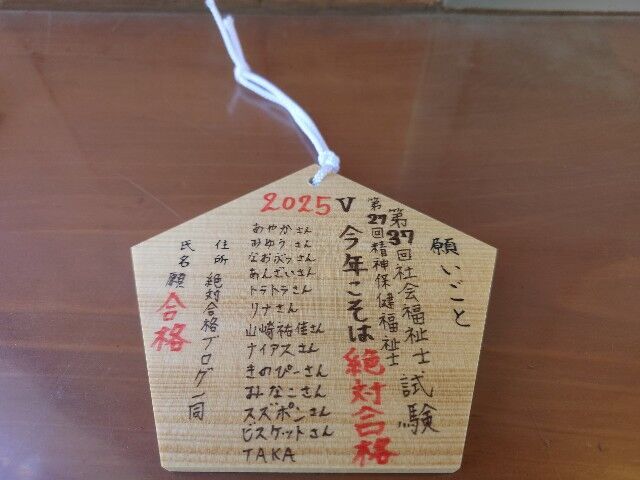 願いごと
第37回社会福祉士試験
第27回精神保健福祉士
2025V
今年こそは絶対合格
あやかさん
みゆうさん
なおぶぅさん
あんざいさん
トラトラさん
リナさん
山崎祐佳さん
ナイアスさん
きのぴーさん
みなこさん
スズポンさん
ビスケットさん
TAKA
住所 絶対合格ブログ一同
氏名 願合格